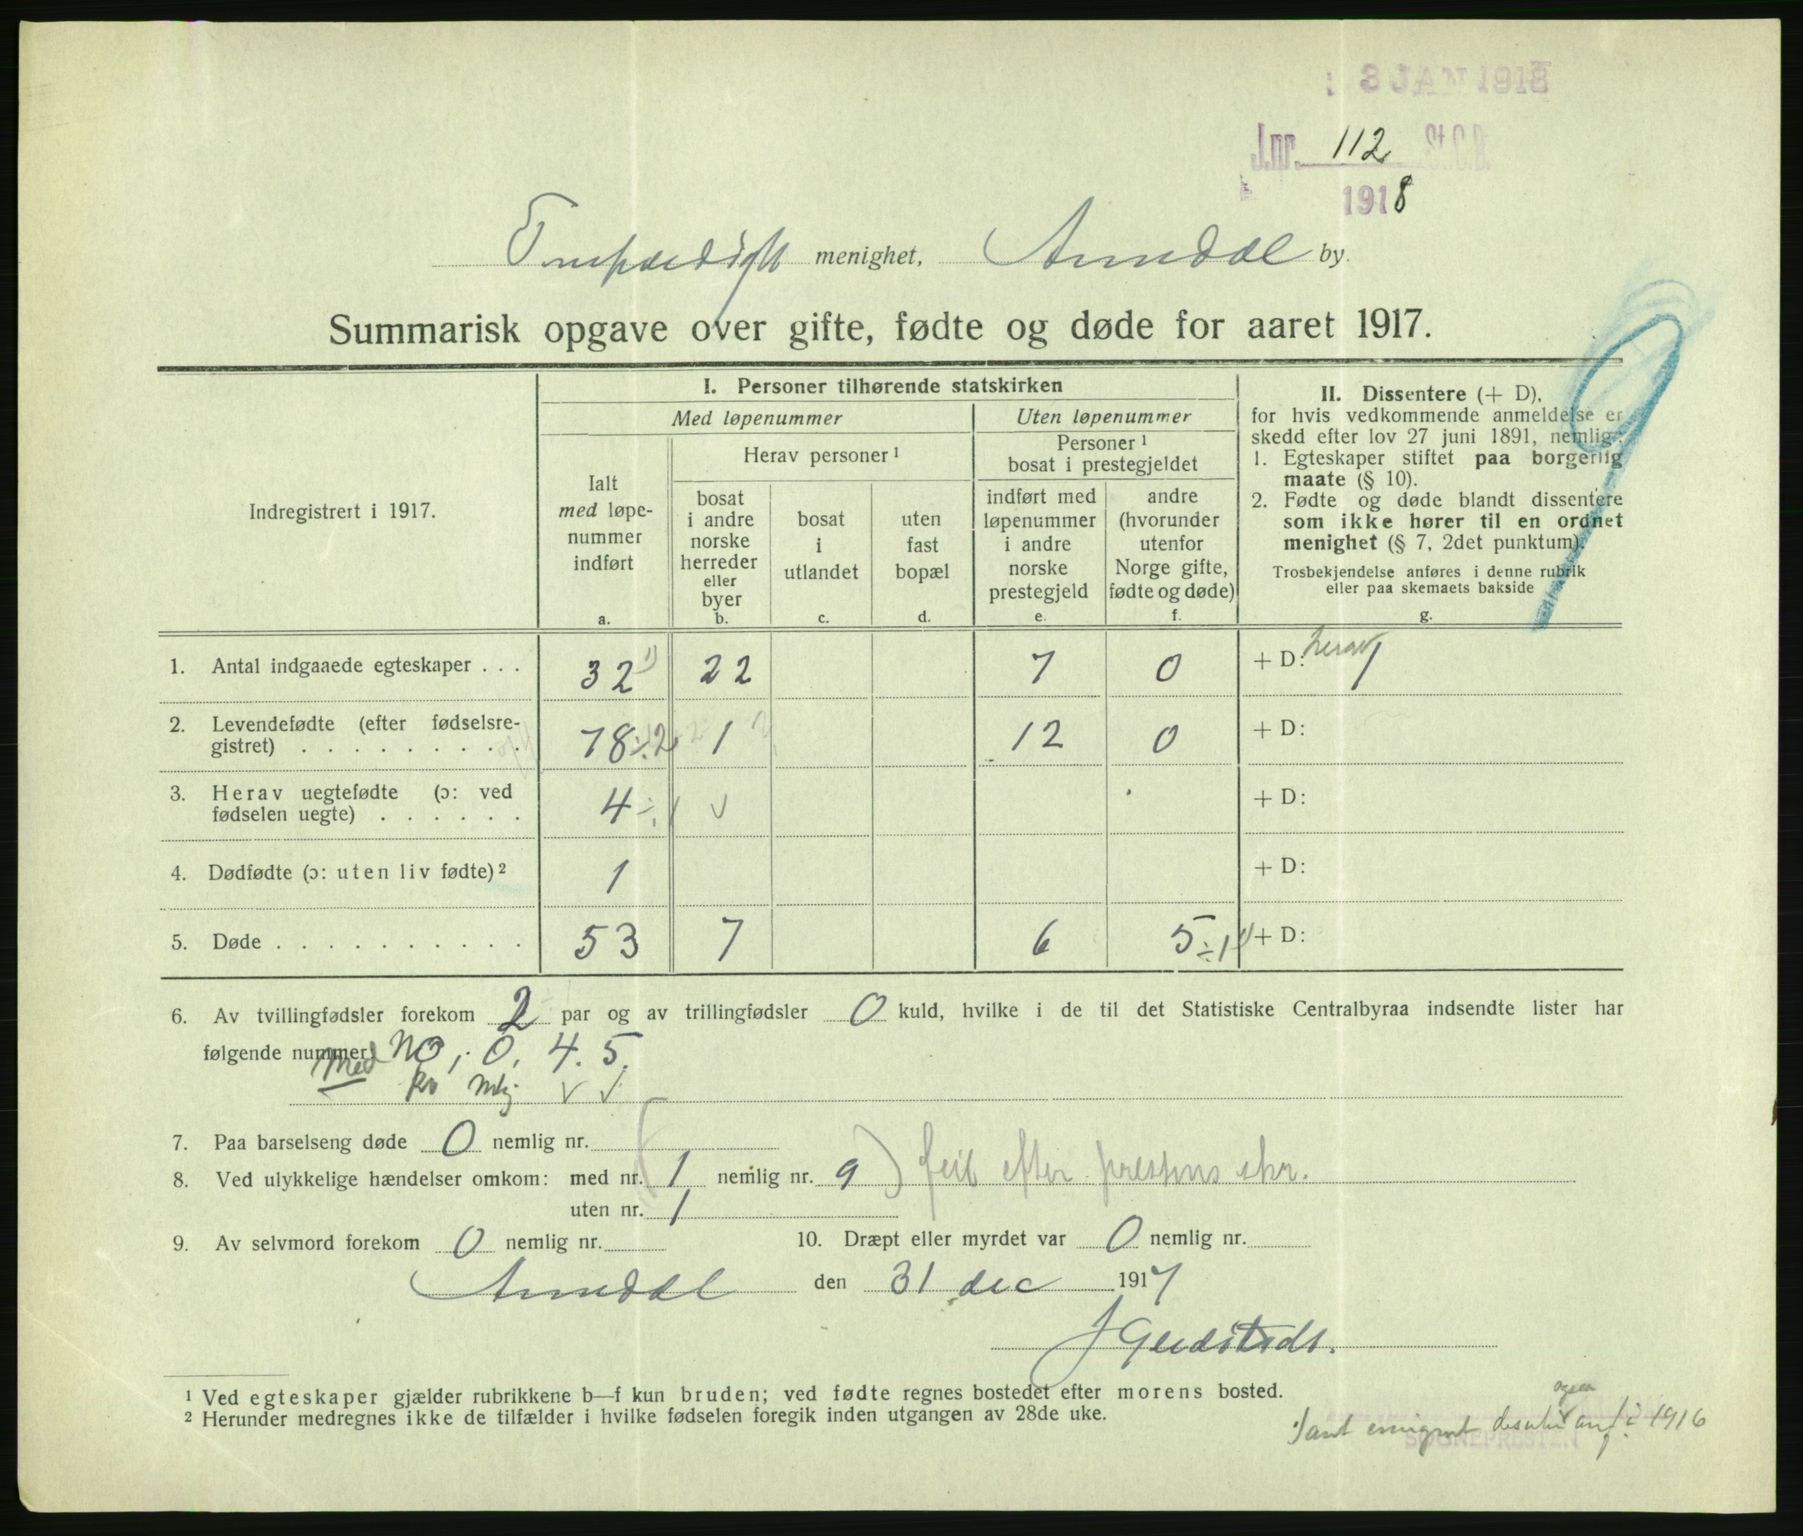 8 JAN 1918
J.nr. 112 St.C.B.
1918
menighet, Arendal by.
Summarisk opgave over gifte, fødte og døde for aaret 1917.
Indregistrert i 1917.
I. Personer tilhørende statskirken
Med løpenummer
Uten løpenummer
Ialt med løpenummer indført
a.
Herav personer ¹
bosat i andre norske herreder eller byer
b.
bosat i utlandet
c.
uten fast bopæl
d.
Personer ¹ bosat i prestegjeldet
indført med løpenummer i andre norske prestegjeld
e.
andre (hvorunder utenfor Norge gifte, fødte og døde)
f.
II. Dissentere (+ D),
for hvis vedkommende anmeldelse er
skedd efter lov 27 juni 1891, nemlig:
1. Egteskaper stiftet paa borgerlig
maate (§ 10).
2. Fødte og døde blandt dissentere
som ikke hører til en ordnet
menighet (§ 7, 2det punktum).
Trosbekjendelse anføres i denne rubrik
eller paa skemaets bakside
g.
9
1. Antal indgaaede egteskaper . . . 32 ¹) 22 7 0 + D: herav 1
2. Levendefødte (efter fødselsre-
gistret) . . . . . . . . . 78 ÷ 2 1 12 0 + D:
3. Herav uegtefødte (ɔ: ved
fødselen uegte) . . . . . . 4 ÷ 1 √ + D:
4. Dødfødte (ɔ: uten liv fødte) ² 1 + D:
5. Døde . . . . . . . . . . 53 7 6 5 ÷ 1 + D:
6. Av tvillingfødsler forekom 2 par og av trillingfødsler 0 kuld, hvilke i de til det Statistiske Centralbyraa indsendte lister har
følgende nummer: No, 0, 4. 5.
Med √ √
7. Paa barselseng døde 0 nemlig nr.
8. Ved ulykkelige hændelser omkom: med nr. ( 1 nemlig nr. 9 ) feil efter prestens skr.
uten nr. 1
9. Av selvmord forekom 0 nemlig nr. 10. Dræpt eller myrdet var 0 nemlig nr.
Arendal den 31 dec 1917
¹ Ved egteskaper gjælder rubrikkene b—f kun bruden; ved fødte regnes bostedet efter morens bosted.
² Herunder medregnes ikke de tilfælder i hvilke fødselen foregik inden utgangen av 28de uke.
ogsaa
i 1916
SOGNEPRESTEN